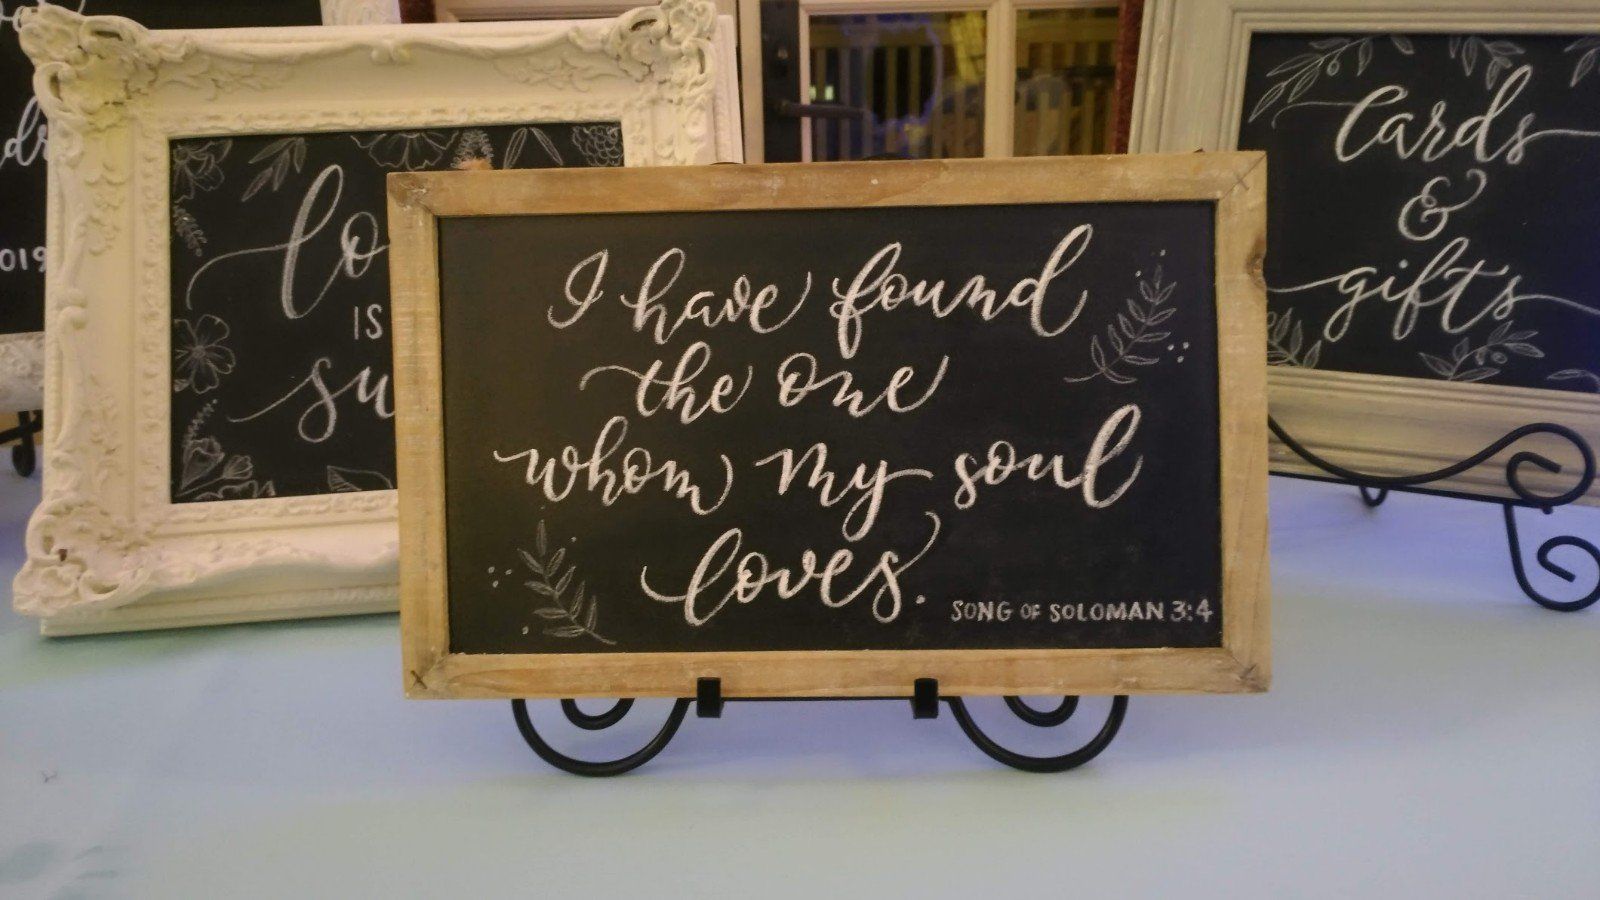 019
lo
IS
su
I have found
the one
whom my soul
loves.
SONG OF SOLOMAN 3:4
Cards
&
gifts